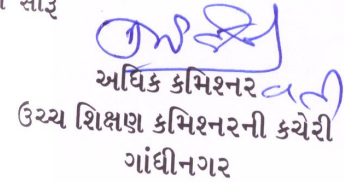 સારૂ
અધિક કમિશ્નર વતી
ઉચ્ચ શિક્ષણ કમિશ્નરની કચેરી
ગાંધીનગર